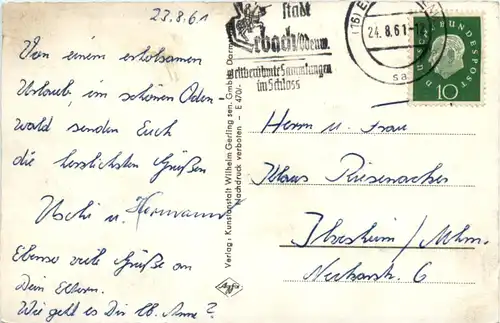 23.8.61
Von einem erholsamen
Urlaub im schönen Oden-
wald senden Euch
die herzlichsten Grüßen
Uschi u. Hermann
Ebenso viele Grüße an
Dein Eltern.
Wie geht es Dir lb. Anne?
Verlag: Kunstanstalt Wilhelm Gerling sen. GmbH Darm
Nachdruck verboten - E 470/
Agfa
Stadt
rbach/Odenw.
weltberühmte Sammlungen
im Schloss
(16) E
24.8.61-12
sa
DEUTSCHE BUNDESPOST
10
Herrn u. Frau
Klaus Riesenacker
Ilvesheim/Mhm.
Neckarstr. 6